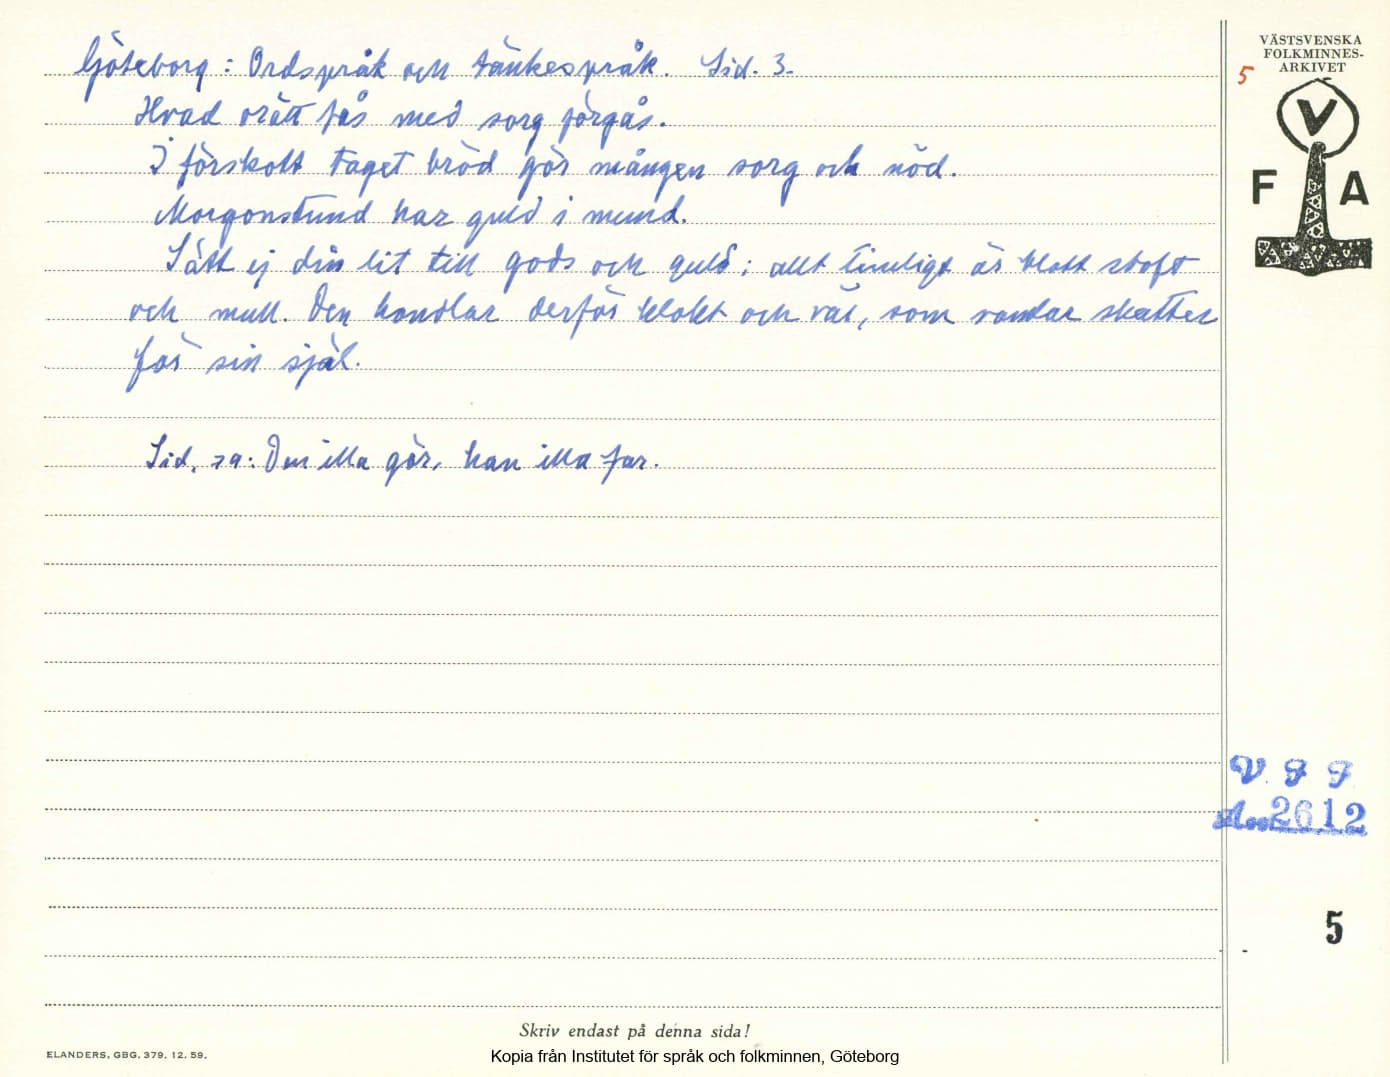 Göteborg: Ordspråk och tänkespråk. Sid. 3.
Hvad orätt fås med sorg förgås.
I förskott taget bröd gör mången sorg och nöd.
Morgonstund har guld i mund.
Sätt ej din lit till gods och guld; allt timligt är blott stoft
och mull. Den handlar derför klokt och väl, som samlar skatter
för sin själ.
Sid. 79: Den illa gör, han illa far.
VÄSTSVENSKA
FOLKMINNES-
ARKIVET
5
V
F A
V F F
Acc 2612
5
Skriv endast på denna sida!
ELANDERS, GBG. 379. 12. 59.
Kopia från Institutet för språk och folkminnen, Göteborg